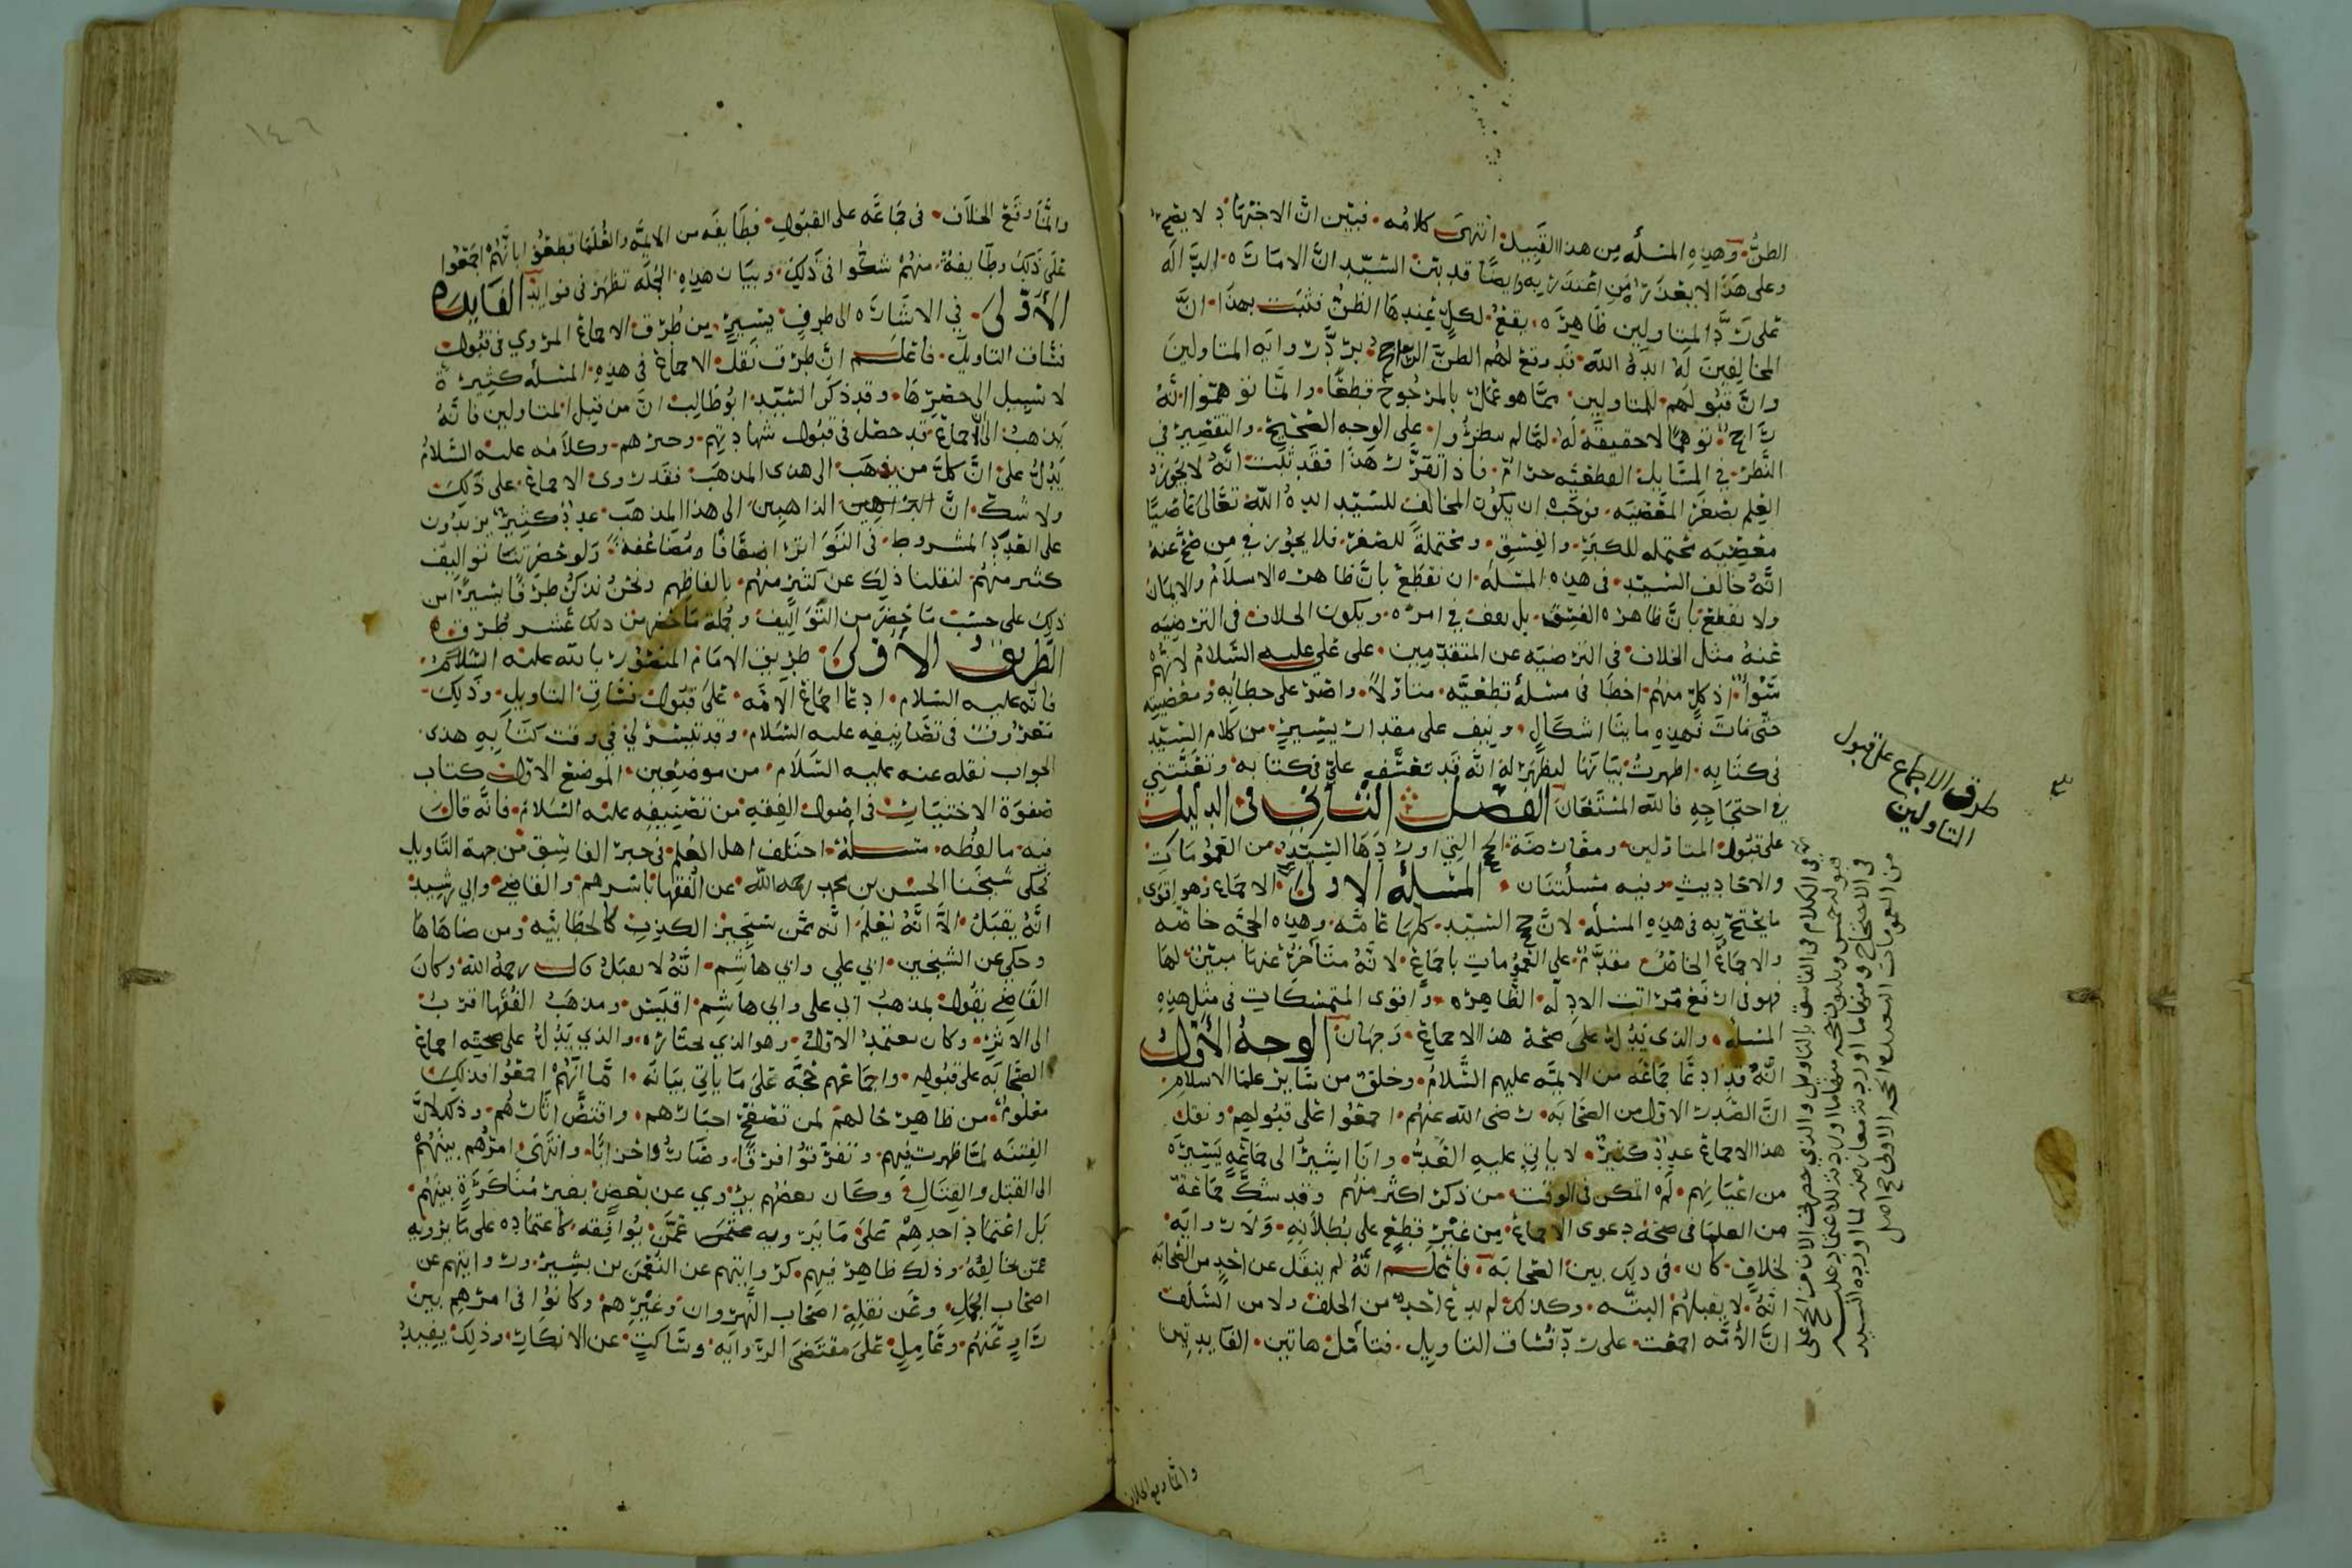 الظنُّ وهذه المسئلة من هذا القبيل انتهى كلامه فبين ان الاجتهاد لا يصح
وعلى هذا الا يعذر من اعتذر به وايضًا قد بين السيّد انّ الامارة الدالة
على ردّ المتاولين ظاهرة يقع لكلٍّ عندها الظنُّ فثبت بهذا انّ
المخالفين له ايده الله قد وقع لهم الظنّ الراجح بردّ رواية المتاولين
وانّ قبولهم للمتاولين ممّا هو عمل بالمرجوح قطعًا وانّما توهّموا انه
راجح توهّمًا لا حقيقة له لمّا لم ينظروا على الوجه الصحيح والتقصير في
النّظر في المسايل القطعيّه حرام فاذا تقرّر هذا فقد ثبت انّه لا يجوز
العلم بصغر المعصيه فوجب ان يكون المخالف للسيّد ايده الله تعالى عاصيًا
معصيه محتمله للكبر والفسق ومحتملة للصغر فلا يجوز في من صحّ عنه
انّه خالف السيّد في هذه المسئله ان نقطع بانّ ظاهره الاسلام والايمان
ولا نقطع بانّ ظاهره الفسق بل نقف في امره ويكون الخلاف في الترضيه
عنه مثل الخلاف في الترضيه عن المتقدّمين على علي عليه السّلام لانّهم
سَوَا اذ كلّ منهم اخطا في مسئلة قطعيّه متاوّلا واصرّ على خطائه ومعصيته
حتّى مات فهذه ماينا اشكال ونيف على مقدار يسير من كلام السيّد
في كتابه اظهرتُ بيانها ليظهر له انه قد تعسّف عليّ في كتابه وتعنّتني
في احتجاجه فالله المستعان الفصل الثاني في الدليل
على قبول المتاوّلين ومعارضة الحجج التي اوردها السيّد من العمومات
والاحاديث وفيه مسئلتان المسئلة الاولى الاجماع وهو اقوى
ما يحتجّ به في هذه المسئلة لانّ حجج السيّد كلها عامّه وهذه الحجّه خاصّه
والاجماع الخاصّ مقدّم على العمومات باجماع لانّه متأخرّ عنها مبيّن لها
فهو في ارفع مراتب الادلّه الظّاهره واقوى المتمسّكات في مثل هذه
المسئلة والذي يدُلُّ على صحّة هذا الاجماع وجهان الوجه الأوّل
انّه قد ادعا جماعة من الايمّه عليهم السّلام وخلق من ساير علما الاسلام
انّ الصّدر الاوّل من الصّحابه رضى الله عنهم اجمعوا على قبولهم ونقل
هذا الاجماع عددٌ كثيرٌ لا ياتي عليه العدّ وانا اشير الى جماعة يسيره
من اعيانهم لم اتمكن في الوقت من ذكر اكثر منهم وقد شكّ جماعة
من العلما في صحّة دعوى الاجماع من غير قطعٍ على بطلانه ولا رواية
لخلافٍ كان في ذلك بين الصّحابة فاعلم انّه لم ينقل عن احدٍ من الصّحابه
انّه لا يقبلهم البتّه وكذلك لم يدع احدٌ من الخلف ولا من السّلف
انّ الأمّه اجمعت على ردّ فسّاق التاويل فتأمّل هاتين الفايدتين
والما وقع الخلاف
طرق الاجماع على قبول
التاولين
وانّما وقع الخلاف في جماعة على القبول فطايفه من الايمّه والعلما قطعوا بانّهم اجمعوا
على ذلك وطايفة منهم شكّوا في ذلك وبيان هذه الجمله تظهر في فوايد الفايدة
الأولى في الاشارة الى طرفٍ يسيرٍ من طُرق الاجماع المروي في قبول
فسّاق التاويل فاعلم انّ طرق نقل الاجماع في هذه المسئلة كثيرة
لا سبيل الى حصرها وقد ذكر السّيّد ابو طالب انّ من قبل المتاولين فانّه
يذهب الى الاجماع قد حصل في قبول شهادتهم وخبرهم وكلامه عليه السّلام
يدُلُّ على انّ كلّ من يذهب الى هذى المذهب فقد روى الاجماع على ذلك
ولا شكّ انّ الذاهبين الى هذا المذهب عددٌ كثير يزيدون
على القدر المشروط في التّواتر اضعافًا مضاعفه ولو حضرتنا تواليف
كثير منهم لنقلنا ذلك عن كثيرٍ منهم بالفاظهم ونحن نذكر طرفًا يسيرًا من
ذلك على حسب ما حضر من التّواليف وجملة ما حضر من ذلك عشر طرق
الطّريق الأولى طريق الامام المنصور بالله عليه السّلام
فانّه عليه السّلام ادعا اجماع الأمّه على قبول فسّاق التاويل وذلك
معروف في تصانيفه عليه السّلام وقد تيسّر لي في وقت كتابه هذى
الجواب نقله عنه عليه السّلام من موضعين الموضع الاوّل كتاب
صفوة الاختيارات في اصول الفقه من تصنيفه عليه السّلام فانّه قال
فيه ما لفظه مسئلة اختلف اهل العلم في خبر الفاسق من جهة التّاويل
فحكى شيخنا الحسن بن محمد رحمه الله عن الفقها باسرهم والقاضي وابي رشيد
انّه يقبل الّا انّه يُعلم انّه ممّن يستجيز الكذب كالخطابيّه ومن ضاهاها
وحكى عن الشيخين ابي علي وابي هاشم انّه لا يقبل قال رحمه الله وكان
القاضي يقول بمذهب ابي على وابي هاشم اقيس ومذهب الفقها اقرب
الى الاثر وكان يعتمد الاوّل وهو الذي نختاره والذي يدُلّ على صحّته اجماع
الصّحابه على قبوله واجماعهم حجّه على ما ياتي بيانه امّا انّهم اجمعوا فذلك
معلوم من ظاهر حالهم لمن تصفّح اخبارهم واقتصّ اثارهم وذلك لانّ
الفتنه لمّا ظهرت فيهم وتفرّقوا فرقًا وصاروا احزابًا وانتهى امرهم بينهم
الى القتل والقتال وكان بعضهم يروي عن بعضٍ بغير مناكرةٍ بينهم
بل اعتماد احدهم على ما يرويه عمّن يوافقه كاعتماده على ما يرويه
عمّن يخالفه وذلك ظاهر فيهم كروايتهم عن النّعمن بن بشير وروايتهم عن
اصحاب الجمل وعمن نقلة اصحاب النّهروان وغيرهم وكانوا في امرهم بين
راوٍ عنهم وعامل على مقتضى الرّواية وساكتٍ عن الانكار وذلك يفيد
١٤٦